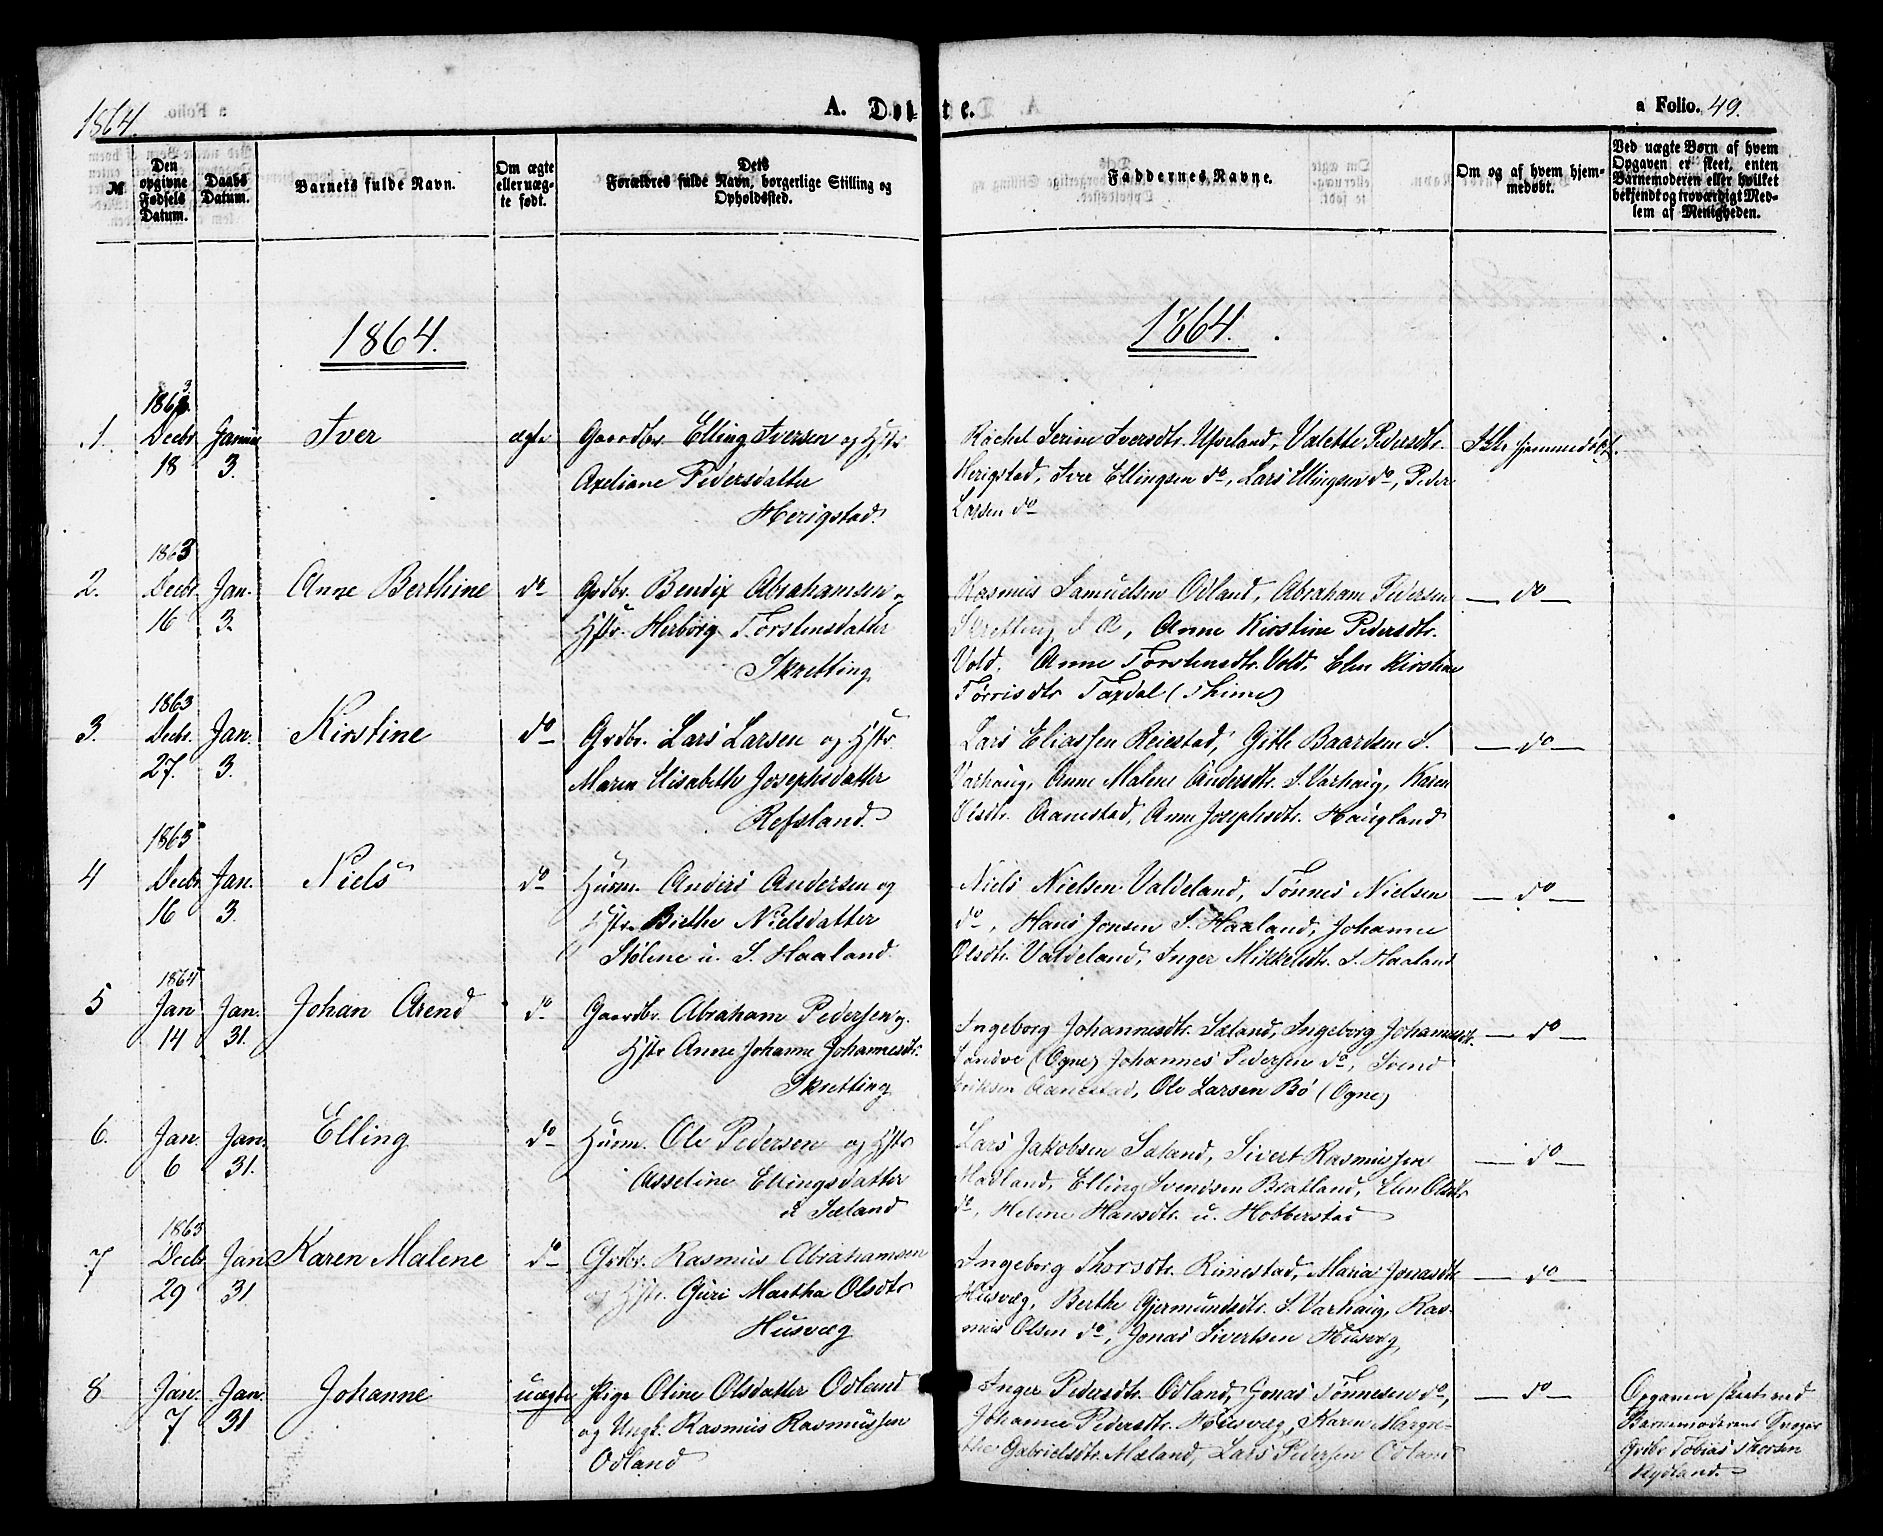 1864.
A. Døbte.
a Folio. 49.
№
Den opgivne Fødsels Datum.
Daabs Datum.
Barnets fulde Navn.
Om ægte eller uægte født.
Dets Forældres fulde Navn, borgerlige Stilling og Opholdssted.
Faddernes Navne.
Om og af hvem hjemmedøbt.
Ved uægte Børn af hvem Opgaven er skeet, enten Barnemoderen eller hvilket bekjendt og troværdigt Medlem af Menigheden.
1864. 1864.
1863
1. Decbr Januar Iver ægte Gaardbr. Elling Iversen og Hstr. Rachel Serine Iversdtr. Upseland, Valette Pedersdtr. Ikke hjemmedøbt.
18 3. Axeliane Pedersdatter Herigstad, Iver Ellingsen do, Lars Ellingsen do, Peder
Herigstad. Larsen do
1863
2. Decbr. Jan. Anne Berthine do Grdbr. Bendix Abrahamsen og Rasmus Samuelsen Odland, Abraham Pedersen — do —
16 3. Hstr. Herborg Torstensdatter Skretting, Anne Kirstine Pedersdtr.
Skretting Vold, Anne Torstensdtr. Vold, Elen Kirstine
Tørrisdtr Taxdal (Thime)
1863
3. Decbr. Jan. Kirstine do Grdbr. Lars Larsen og Hstr. Lars Eliassen Reiestad, Gitle Baardsen S. — do —
27. 3. Maren Elisabeth Josephsdatter Varhaug, Anne Malene Andersdtr. S. Varhaug, Karen
Refsland. Olsdtr. Aanestad, Anne Josephsdtr. Haugland
1863
4 Decbr Jan. Niels do Husm. Anders Andersen og Niels Nielsen Valdeland, Tønnes Nielsen — do —
16 3. Hstr. Birthe Nielsdatter do, Hans Jonsen S. Haaland, Johanne
Stølene u. S. Haaland Olsdtr. Valdeland, Inger Mikkelsdtr. S. Haaland
1864
5 Jan Jan. Johan Arend do Gaardbr. Abraham Pedersen og Ingeborg Johannesdtr. Sæland, Ingeborg Johannesdtr. — do —
14 31. Hstr Anne Johanne Johannesdtr. Sandve (Ogne) Johannes Pedersen do, Svend
Skretting Eriksen Aanestad, Ole Larsen Bø (Ogne)
6. Jan. Jan. Elling do Husm. Ole Pedersen og Hstr Lars Jakobsen Sæland, Sivert Rasmussen — do —
6 31. Asseline Ellingsdatter Madland, Elling Svendsen Bratland, Elen Olsdtr
u Sæland do, Helene Hansdtr. u. Hobberstad
1863
7 Decbr Jan Karen Malene do Grdbr. Rasmus Abrahamsen Ingeborg Thorsdtr. Rimestad, Maria Jonasdtr. — do —
29 31 og Hstr. Guri Martha Olsdtr Husvæg, Berthe Gjermundsdtr. S. Varhaug, Ras-
Husvæg mus Olsen do, Jonas Sivertsen Husvæg
8 Jan. Jan. Johanne uægte Pige Oline Olsdatter Odland Inger Pedersdtr. Odland, Jonas Tønnesen do, — do — Opgaven skeet ved
7 31 og Ungk. Rasmus Rasmussen Johanne Pedersdtr. Husvæg, Karen Margre- Barnemoderens Svoger
Odland the Gabrielsdtr. Mæland, Lars Pedersen Odland Grdbr Tobias Thorsen
Rydland.